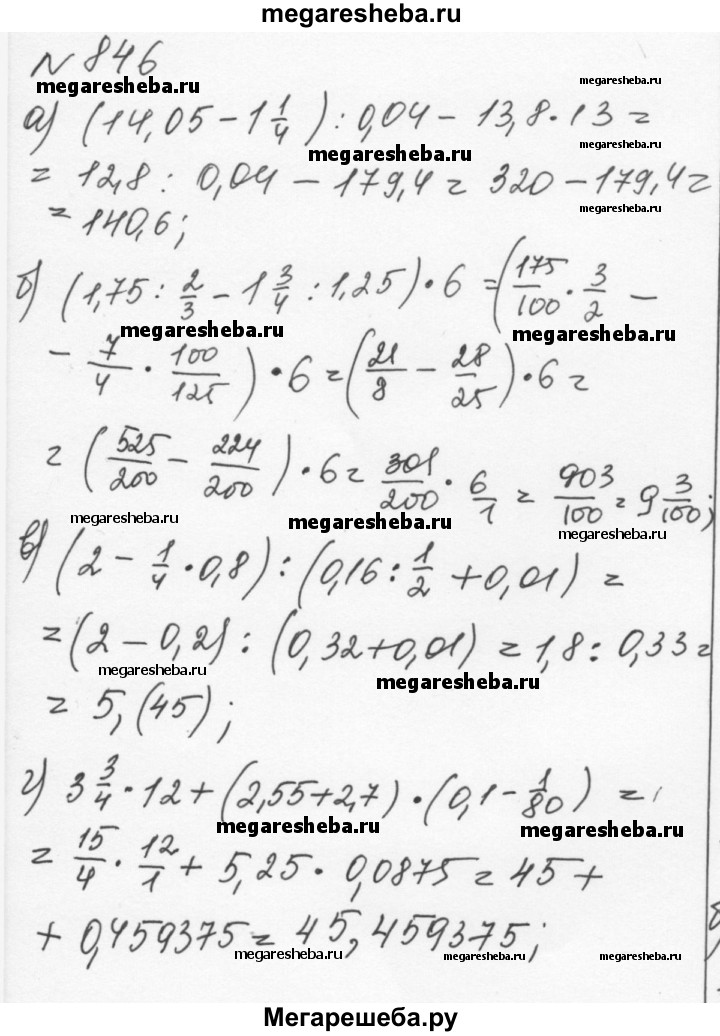 megaresheba.ru
№ 846
megaresheba.ru
megaresheba.ru
а) (14,05 - 1 1/4) : 0,04 - 13,8 · 13 =
megaresheba.ru
= 12,8 : 0,04 - 179,4 = 320 - 179,4 =
megaresheba.ru
= 140,6;
б) (1,75 : 2/3 - 1 3/4 : 1,25) · 6 = (175/100 · 3/2 -
megaresheba.ru
megaresheba.ru
- 7/4 · 100/125) · 6 = (21/8 - 28/25) · 6 =
megaresheba.ru
= (525/200 - 224/200) · 6 = 301/200 · 6/1 = 903/100 = 9 3/100;
megaresheba.ru
megaresheba.ru
megaresheba.ru
в) (2 - 1/4 · 0,8) : (0,16 : 1/2 + 0,01) =
= (2 - 0,2) : (0,32 + 0,01) = 1,8 : 0,33 =
megaresheba.ru
megaresheba.ru
= 5,(45);
г) 3 3/4 · 12 + (2,55 + 2,7) · (0,1 - 1/80) =
megaresheba.ru
megaresheba.ru
= 15/4 · 12/1 + 5,25 · 0,0875 = 45 +
+ 0,459375 = 45,459375;
megaresheba.ru
megaresheba.ru
Мегарешеба.ру